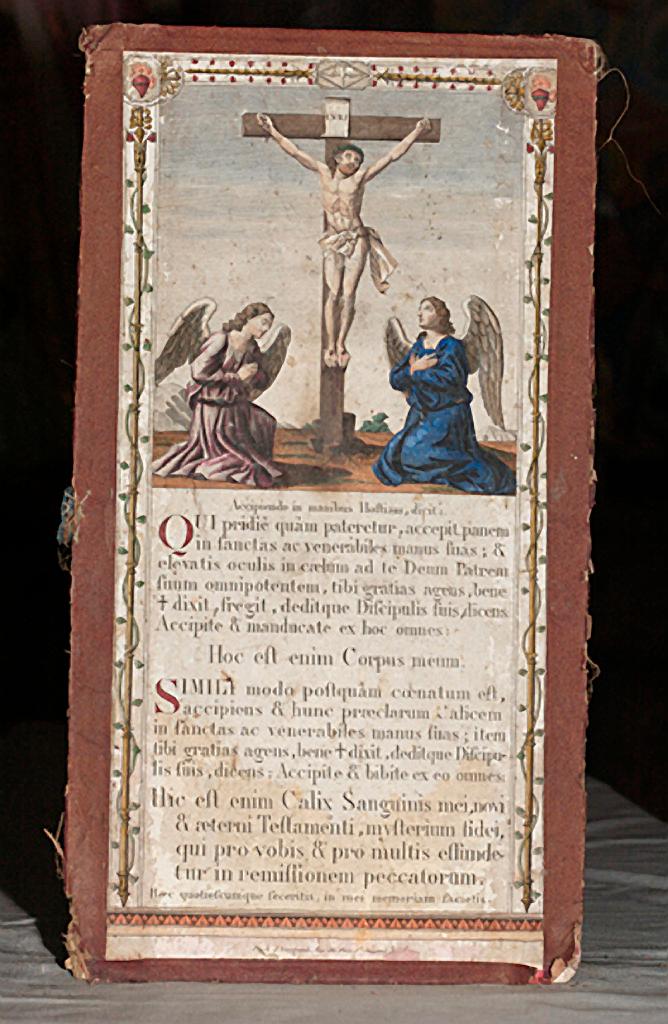 INRI
Accipiendo in manibus Hostiam, dicit:
QUI pridiè quàm pateretur, accepit panem
in ſanctas ac venerabiles manus ſuas; &
elevatis oculis in cælum ad te Deum Patrem
ſuum omnipotentem, tibi gratias agens, bene
✝ dixit, fregit, deditque Diſcipulis ſuis, dicens
Accipite & manducate ex hoc omnes:
Hoc eſt enim Corpus meum.
SIMILI modo poſtquàm cœnatum eſt,
accipiens & hunc præclarum Calicem
in ſanctas ac venerabiles manus ſuas; item
tibi gratias agens, bene ✝ dixit, deditque Diſcipu-
lis ſuis, dicens: Accipite & bibite ex eo omnes:
Hic eſt enim Calix Sanguinis mei, novi
& æterni Teſtamenti, myſterium fidei,
qui pro vobis & pro multis effunde-
tur in remiſſionem peccatorum.
Hæc quotieſcumque feceritis, in mei memoriam facietis.